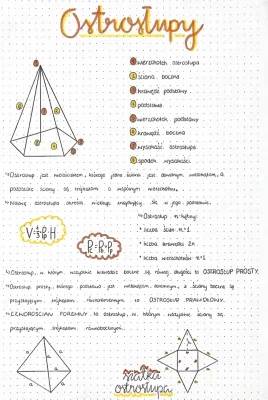 Ostrosłupy
wierzchołek ostrosłupa
ściana boczna
krawędź podstawy
podstawa
wierzchołek podstawy
krawędź boczna
wysokość ostrosłupa
spodek wysokości
Ostrosłup jest wielościanem, którego jedna ściana jest dowolnym wielokątem, a
pozostałe ściany są trójkątami o wspólnym wierzchołku.
Nazwa ostrosłupa określa wielokąt znajdujący się w jego podstawie.
Ostrosłup n-kątny:
V=⅓Pp·H
liczba ścian n+1
liczba krawędzi 2n
Pc=Pb+Pp
liczba wierzchołków n+1
Ostrosłup, w którym wszystkie krawędzie boczne są równej długości to OSTROSŁUP PROSTY.
Ostrosłup prosty, którego podstawa jest wielokątem foremnym, a ściany boczne są
przystającymi trójkątami równoramiennymi to OSTROSŁUP PRAWIDŁOWY.
CZWOROŚCIAN FOREMNY to ostrosłup, w którym wszystkie ściany są
przystającymi trójkątami równobocznymi.
a a a
a a
siatka
ostrosłupa